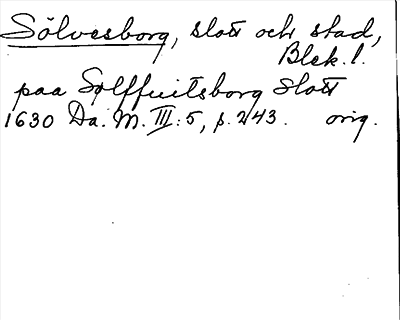 Sölvesborg, slott och stad,
Blek. l.
paa Sølffuitsborg Slott
1630 Da. M. III: 5, p. 243. orig.